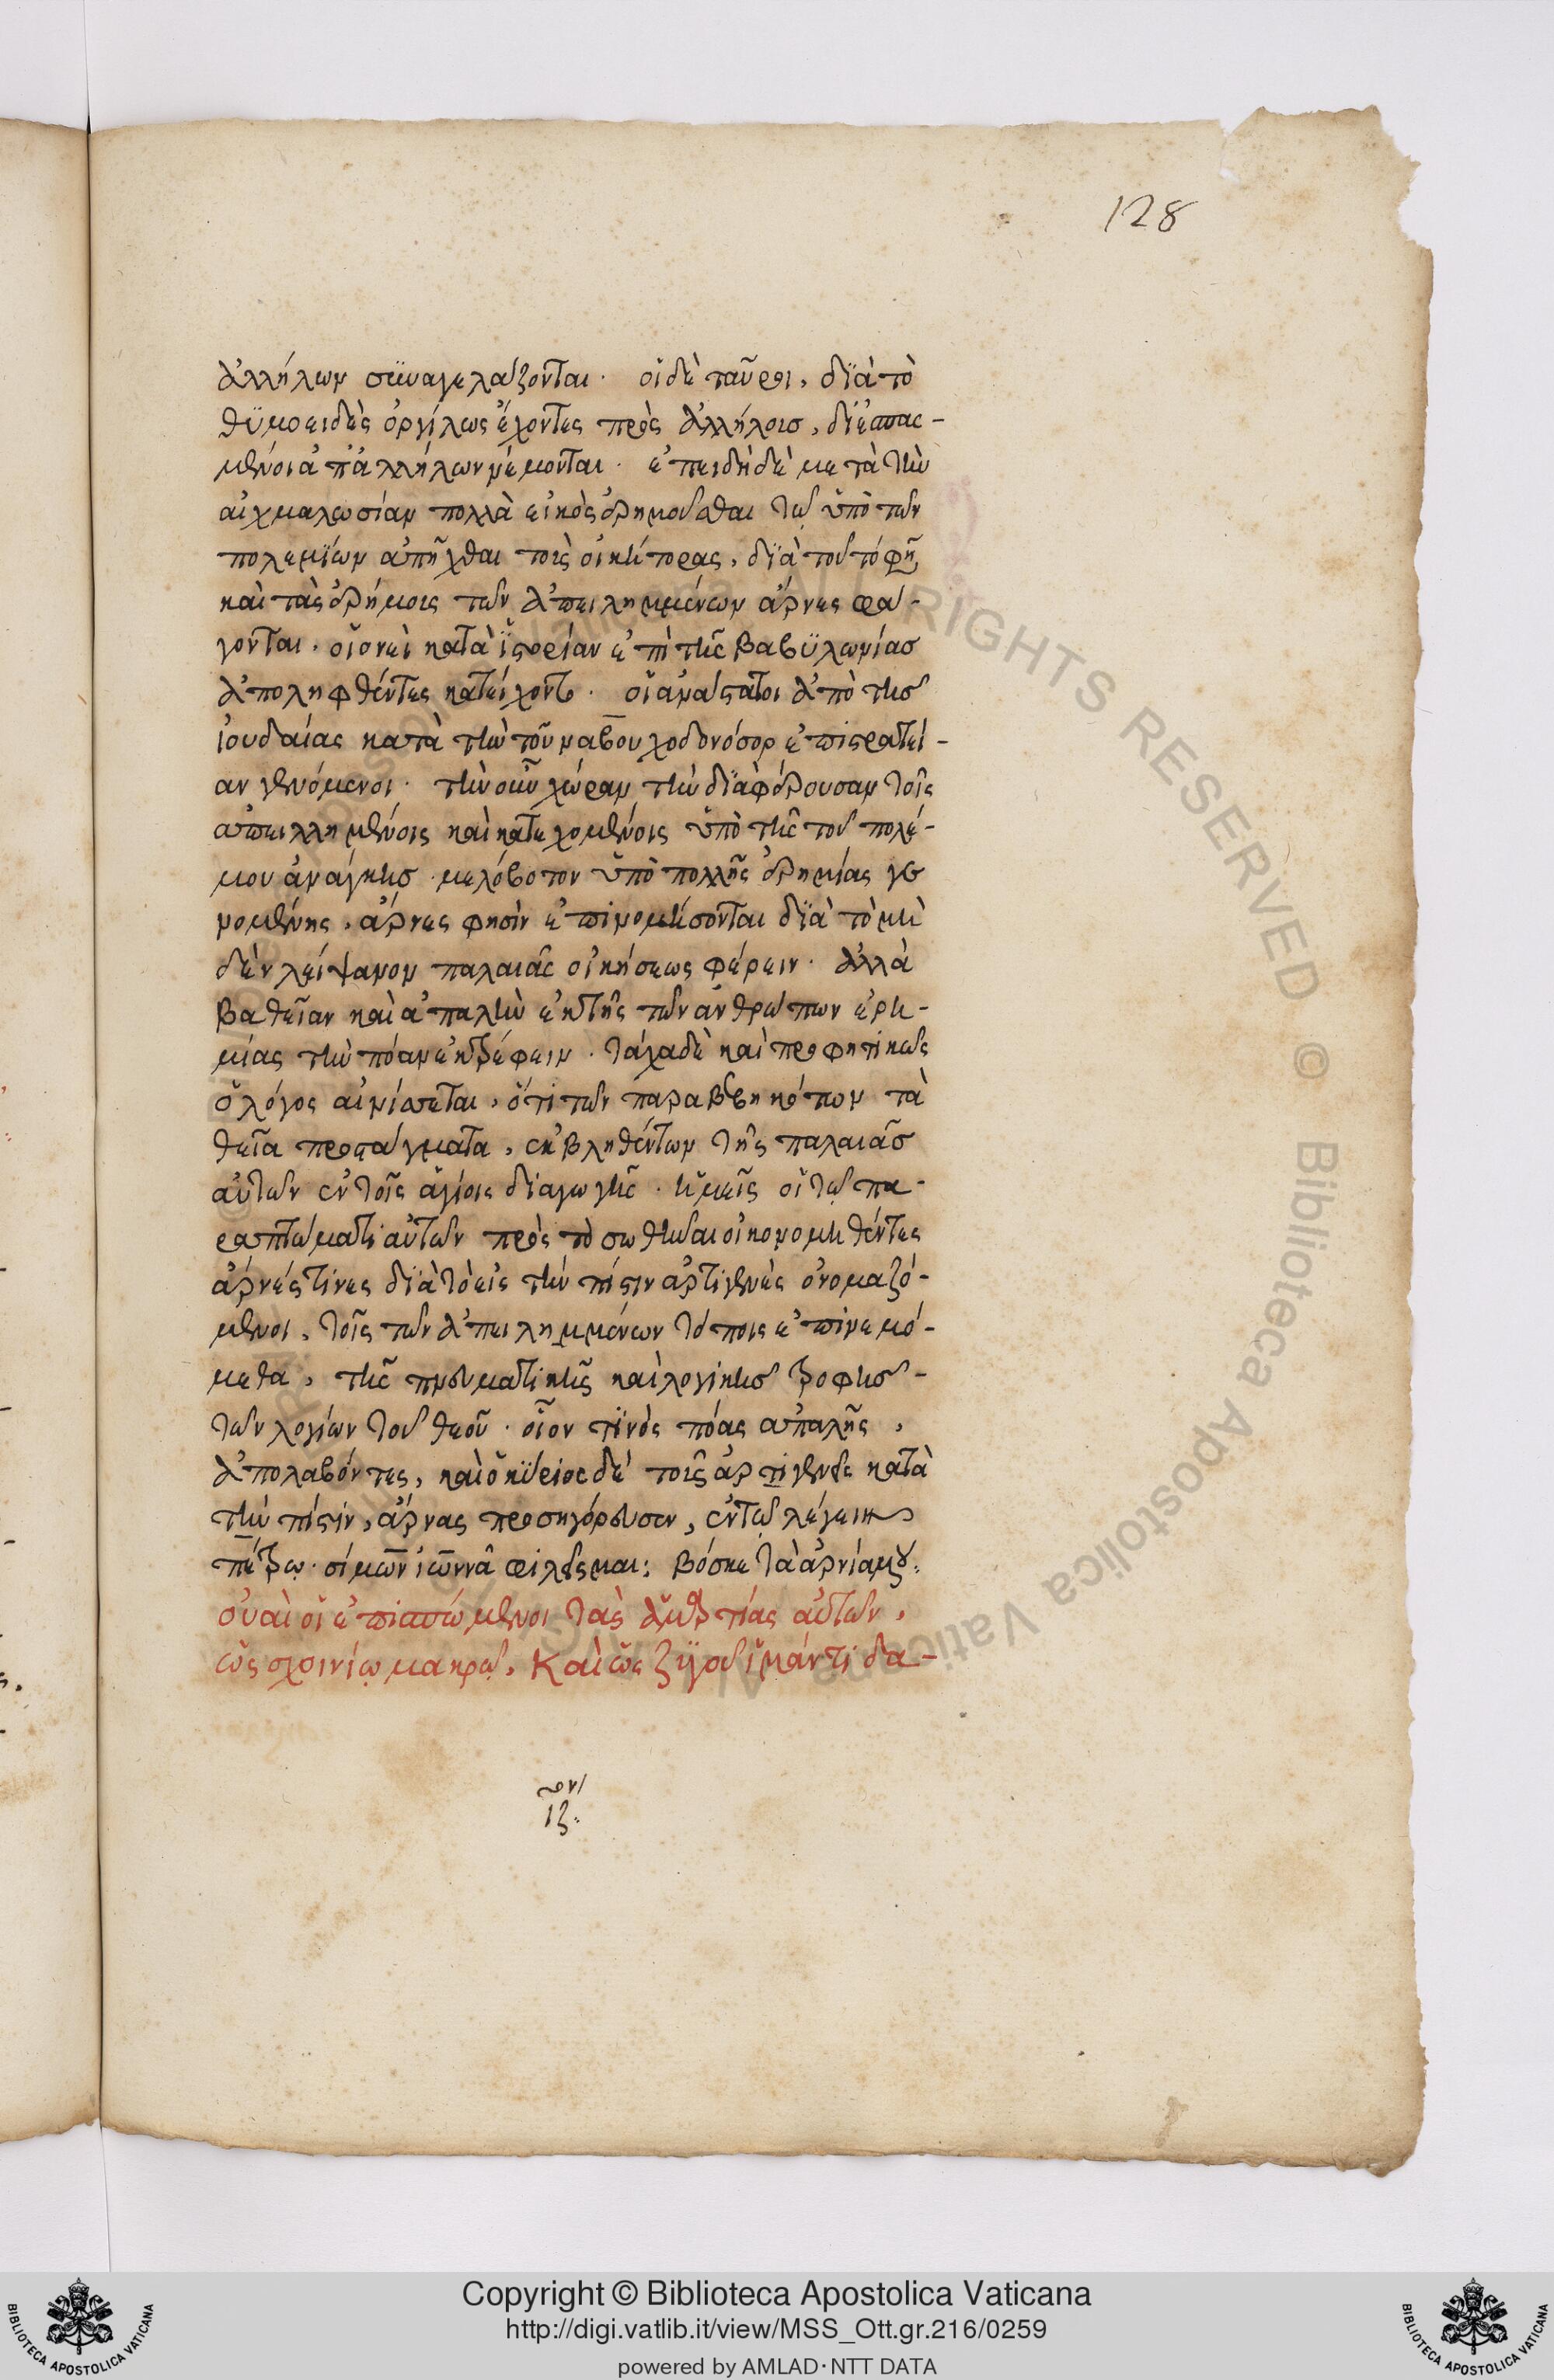 128
ἀλλήλων συναγελάζονται· οἱ δὲ ταῦροι, διὰ τὸ
θυμοειδὲς ὀργίλως ἔχοντες πρὸς ἀλλήλους, διεσπασ-
μένοι ἀπ' ἀλλήλων νέμονται· ἐπειδὴ δὲ μετὰ τὴν
αἰχμαλωσίαν πολλὰ εἰκὸς ἐρημοῦσθαι τῷ ὑπὸ τῶν
πολεμίων ἀπῆχθαι τοὺς οἰκήτορας, διὰ τοῦτό φησι
καὶ τὰς ἐρήμους τῶν ἀπειλημμένων ἄρνες φά-
γονται, οἱονεὶ κατὰ ἱστορίαν ἐπὶ τῆς βαβυλωνίας
ἀποληφθέντες κατείχοντο· οἱ ἀνάστατοι ἀπὸ τῆς
ἰουδαίας κατὰ τὴν τοῦ ναβουχοδονόσορ ἐπιστρατεί-
αν γενόμενοι· τὴν οὖν χώραν τὴν διαφέρουσαν τοῖς
ἀπειλλημένοις καὶ κατεχομένοις ὑπὸ τῆς τοῦ πολέ-
μου ἀνάγκης· μηλόβοτον ὑπὸ πολλῆς ἐρημίας γε
νομένης, ἄρνες φησὶν ἐπινομήσονται διὰ τὸ μη
δὲν λείψανον παλαιᾶς οἰκήσεως φέρειν· ἀλλὰ
βαθεῖαν καὶ ἁπαλὴν ἐκ τῆς τῶν ἀνθρώπων ἐρη-
μίας τὴν πόαν ἐκτρέφειν· τάχα δὲ καὶ προφητικῶς
ὁ λόγος αἰνίσσεται, ὅτι τῶν παραβεβηκότων τὰ
θεῖα προστάγματα, ἐκβληθέντων τῆς παλαιᾶς
αὐτῶν ἐν τοῖς ἁγίοις διαγωγῆς· ἡμεῖς οἱ τῷ πα-
ραπτώματι αὐτῶν πρὸς τὸ σωθῆναι οἰκονομηθέντες
ἄρνές τινες διὰ τὸ εἰς τὴν πίστιν ἀρτιγενὲς ὀνομαζό-
μενοι, τοῖς τῶν ἀπειλημμένων τόποις ἐπινεμό-
μεθα, τῆς πνευματικῆς καὶ λογικῆς τροφῆς -
τῶν λογίων τοῦ θεοῦ· οἷον τινὸς πόας ἁπαλῆς,
ἀπολαβόντες, καὶ ὁ κύριος δὲ τοὺς ἀρτιγενεῖς κατὰ
τὴν πίστιν, ἄρνας προσηγόρευσεν, ἐν τῷ λέγειν
πέτρῳ· σίμων ἰωννᾶ φιλεῖς με: βόσκε τὰ ἀρνία μου:
οὐαὶ οἱ ἐπισπώμενοι τὰς ἁμαρτίας αὐτῶν,
ὡς σχοινίῳ μακρῷ, Καὶ ὡς ζυγοῦ ἱμάντι δα-
ιζ:
Copyright © Biblioteca Apostolica Vaticana
http://digi.vatlib.it/view/MSS_Ott.gr.216/0259
powered by AMLAD·NTT DATA
BIBLIOTECA APOSTOLICA VATICANA
BIBLIOTECA APOSTOLICA VATICANA